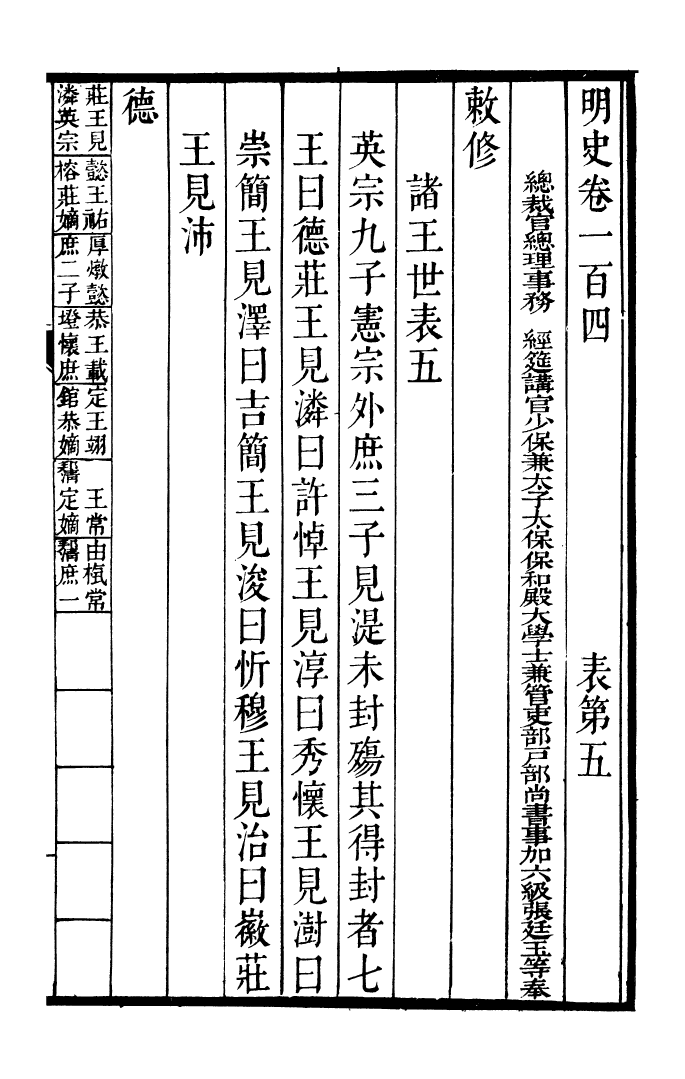 明史卷一百四　表第五
總裁官總理事務　經筵講官少保兼太子太保保和殿大學士兼管吏部戶部尚書事加六級張廷玉等奉
敕修
諸王世表五
英宗九子憲宗外庶三子見湜未封殤其得封者七
王曰德莊王見潾曰許悼王見淳曰秀懷王見澍曰
崇簡王見澤曰吉簡王見浚曰忻穆王見治曰徽莊
王見沛
德
莊王見
潾英宗
懿王祐
榕莊嫡
厚燉懿
庶二子
恭王載
墱懷庶
定王翊
錧恭嫡
王常
定嫡
由樞常
庶一